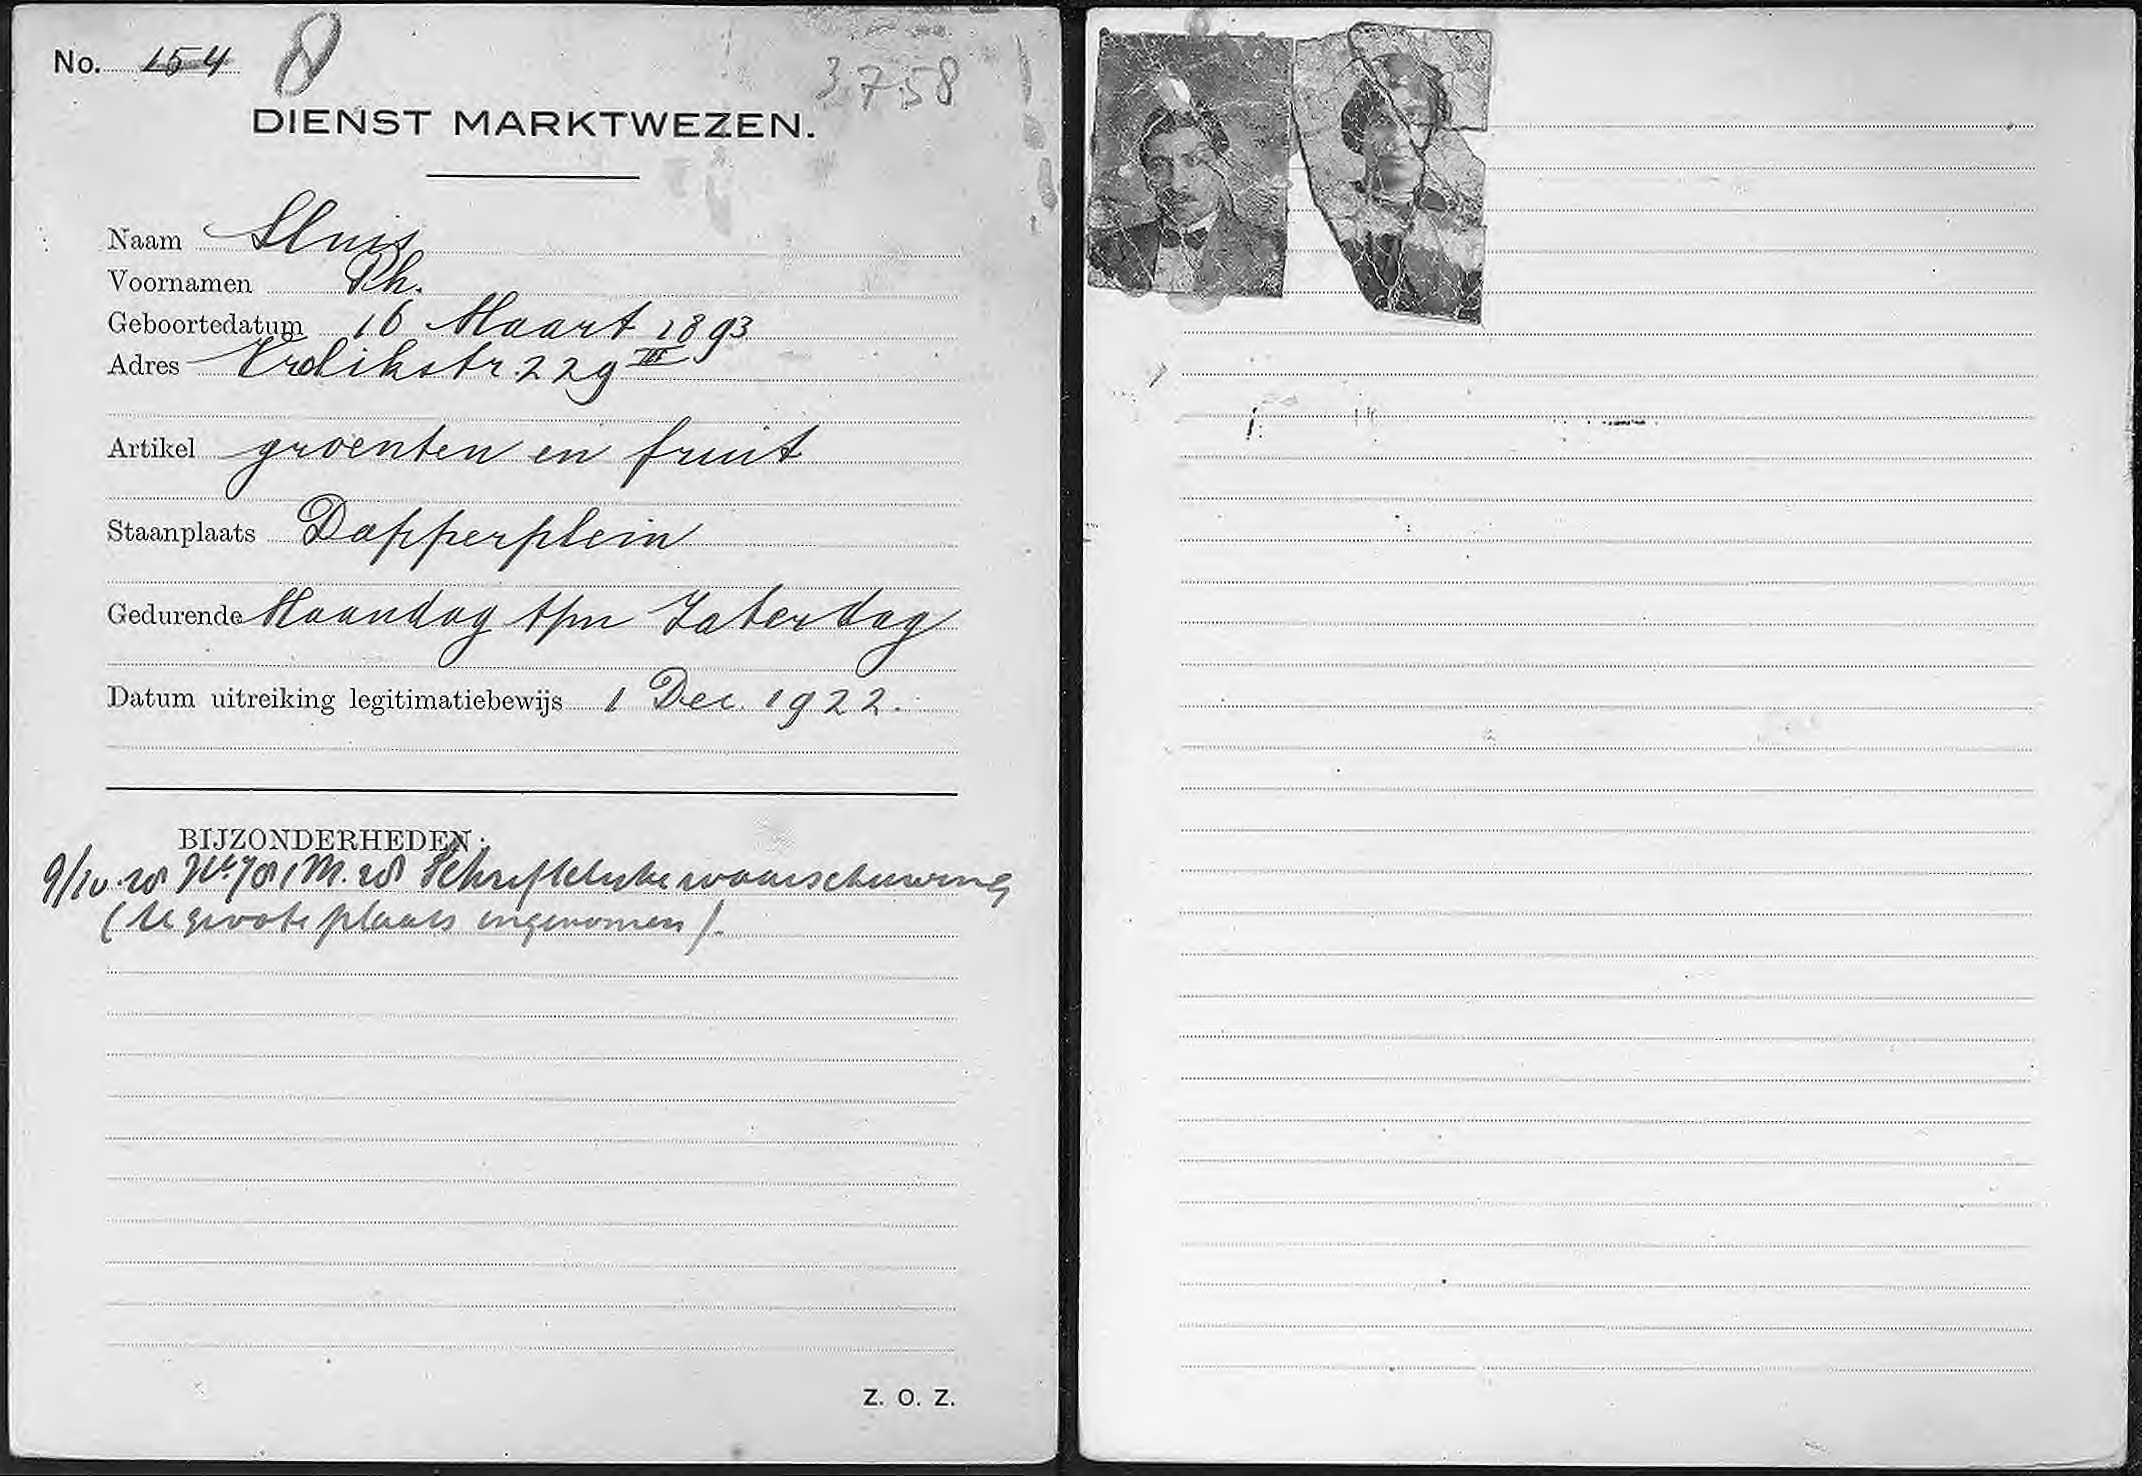 No. 154 8
3758
DIENST MARKTWEZEN.
Naam Sluis
Voornamen Ph.
Geboortedatum 16 Maart 1893
Adres Vrolikstr. 229 III
Artikel groenten en fruit
Staanplaats Dapperplein
Gedurende Maandag t/m Zaterdag
Datum uitreiking legitimatiebewijs 1 Dec. 1922.
BIJZONDERHEDEN:
Schriftelijke waarschuwing
(te groote plaats ingenomen).
Z. O. Z.